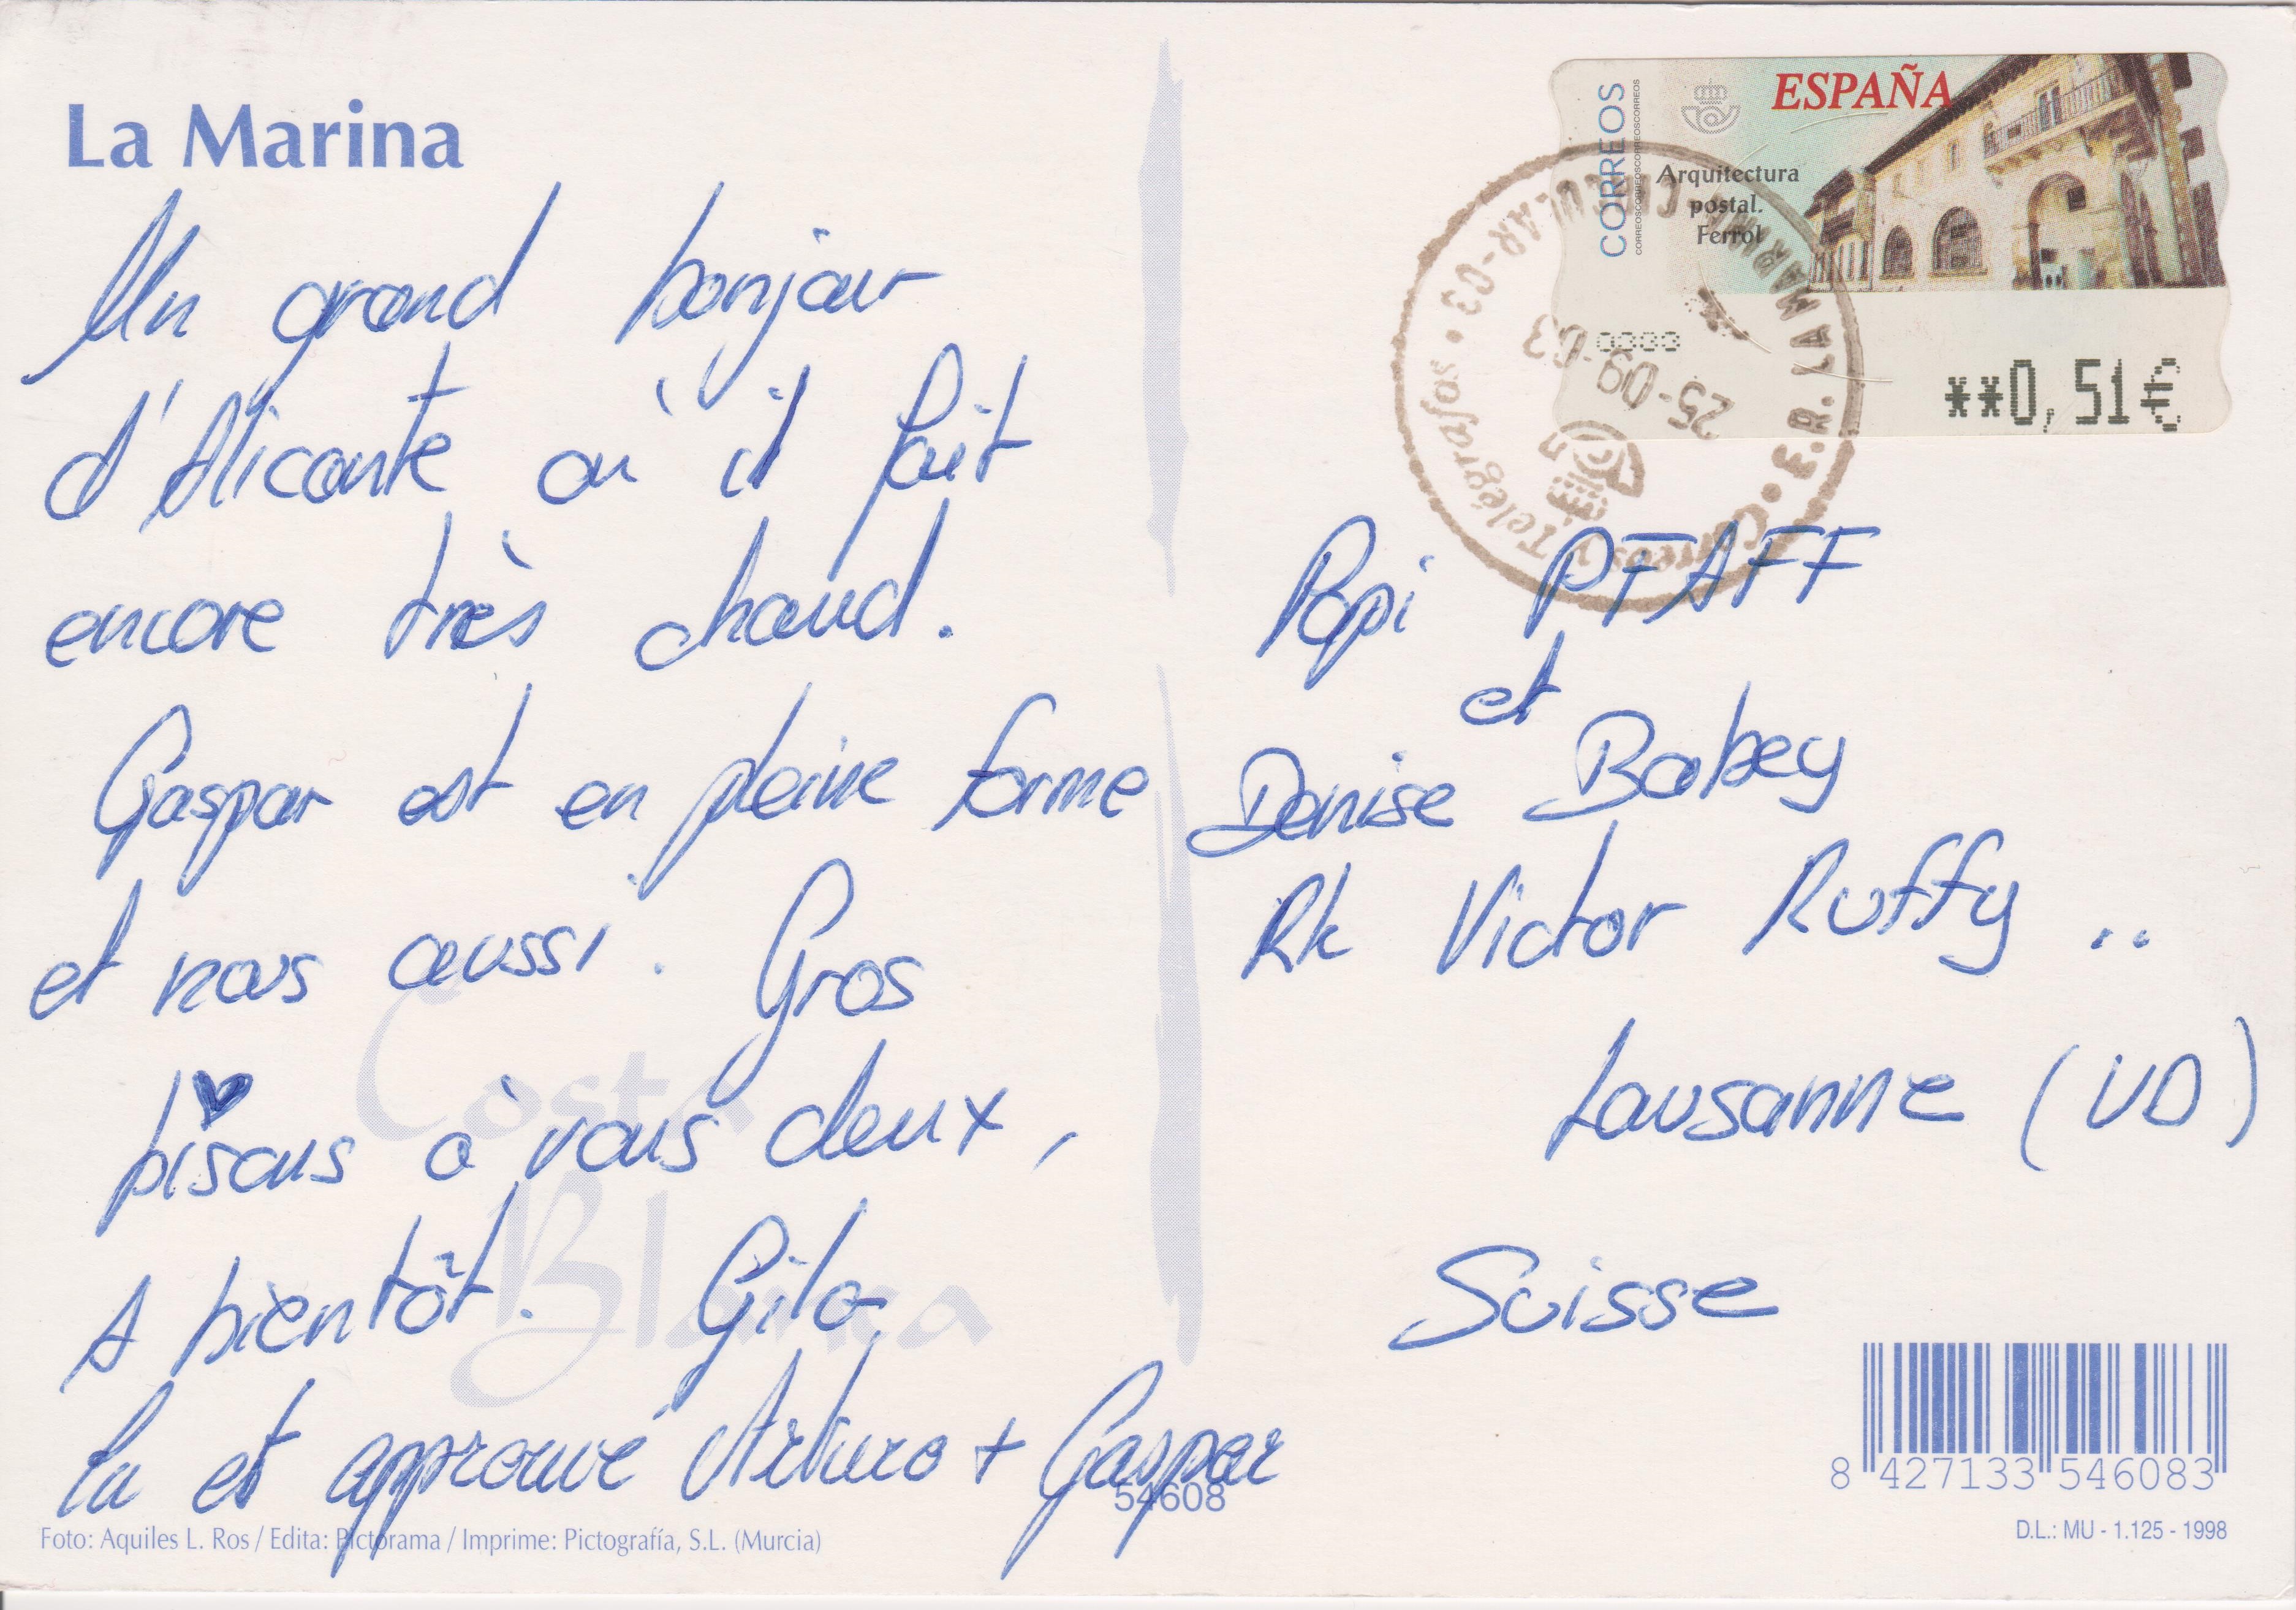 La Marina
Un grand bonjour
d'Alicante où il fait
encore très chaud.
Gaspar est en pleine forme
et nous aussi. Gros
bisous à vous deux,
A bientôt. Gila
Lu et approuvé Arturo + Gaspar
Costa
Blanca
54608
Foto: Aquiles L. Ros / Edita: Pictorama / Imprime: Pictografía, S.L. (Murcia)
CORREOS
ESPAÑA
Arquitectura
postal.
Ferrol
**0,51€
Correos y Telégrafos • S.R. LA MARINA
25-09-03
Papi PFAFF
et
Denise Babey
Victor Ruffy ..
Lausanne (VD)
Suisse
8 427133 546083
D.L.: MU - 1.125 - 1998